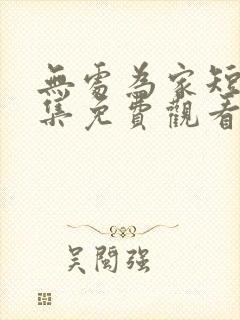 無處為家短
集免費觀看
吴閩强